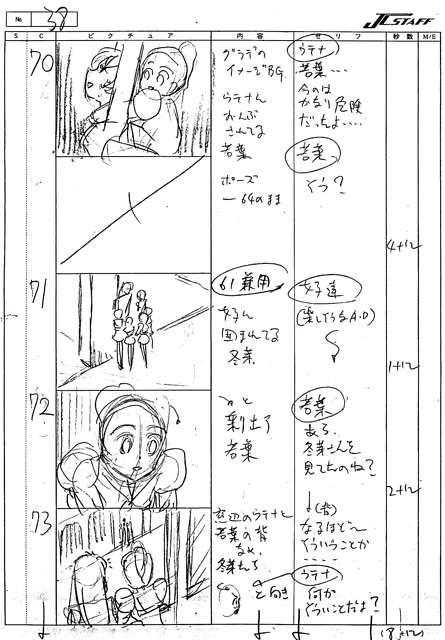 No. 38
J.C.STAFF
S C ピクチュア 内容 セリフ 秒数 M/E
70
グラデの
イメージBG.
ウテナに
おんぶ
されてる
若葉
ポーズ
64のまま
ウテナ
若葉…
今のは
かなり危険
だったよ….
若葉
そう?
4+12
71
61兼用
女子に
囲まれてる
冬芽
女子達
(楽しそうなAD)
1+12
72
と
乗り出す
若葉
若葉
ある.
冬芽さんを
見てたのね?
2+12
73
窓辺のウテナと
若葉の背
冬芽
と向き
なるほど〜
そういうことか
ウテナ
何が
そういうことだよ?
(8+12